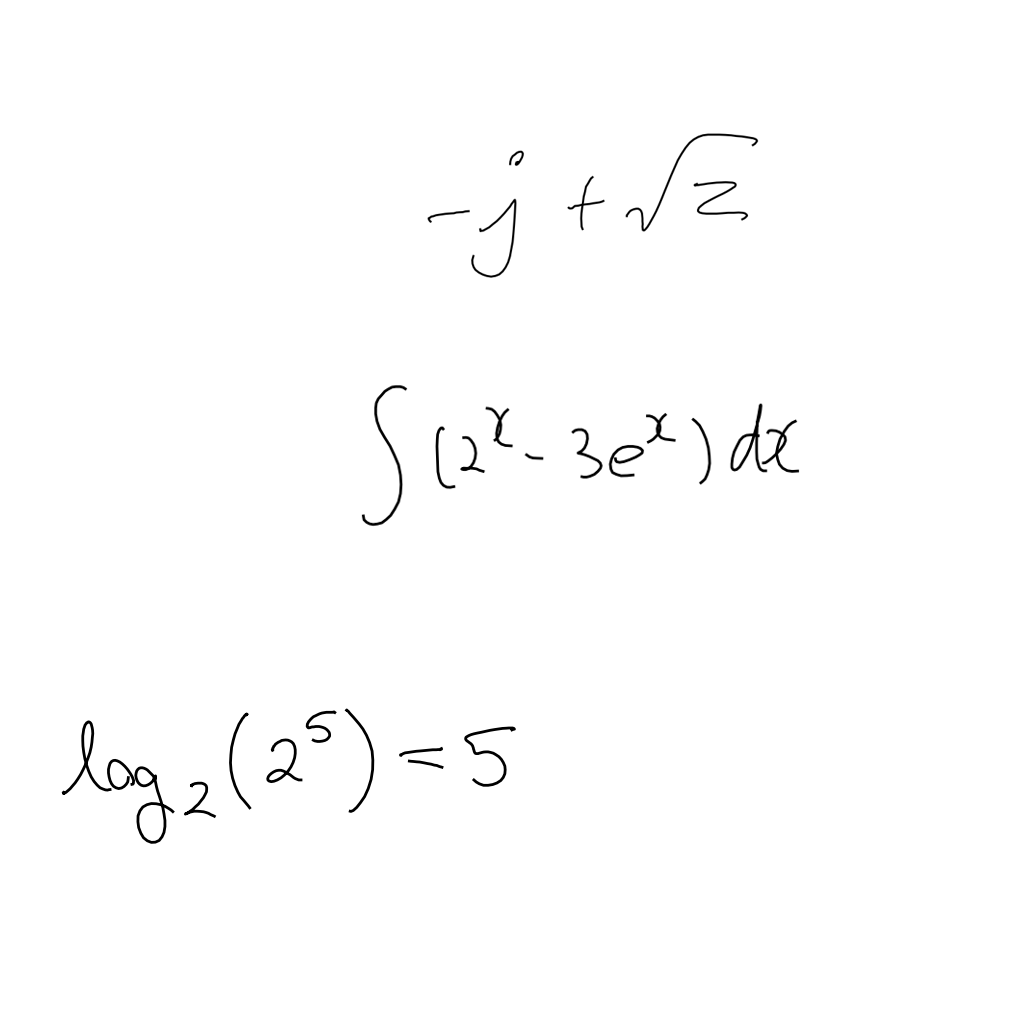 -j + √z
∫(2^x - 3e^x) dx
log_2(2^5) = 5